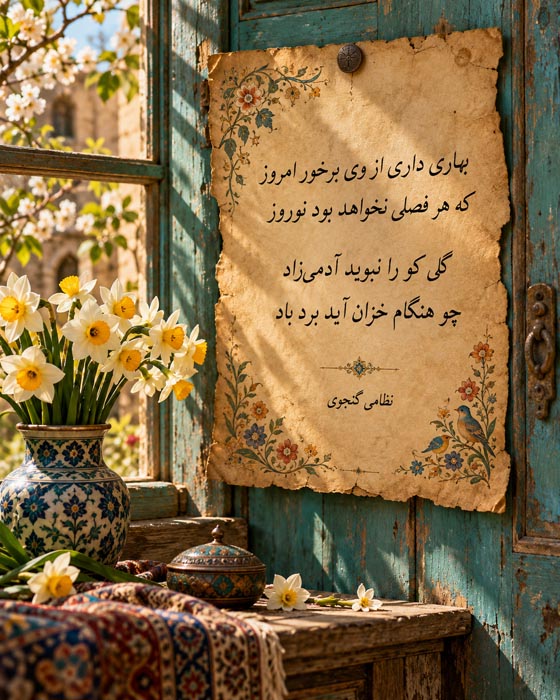 بهاری داری از وی برخور امروز
که هر فصلی نخواهد بود نوروز
گلی کو را نبوید آدمی‌زاد
چو هنگام خزان آید برد باد
نظامی گنجوی